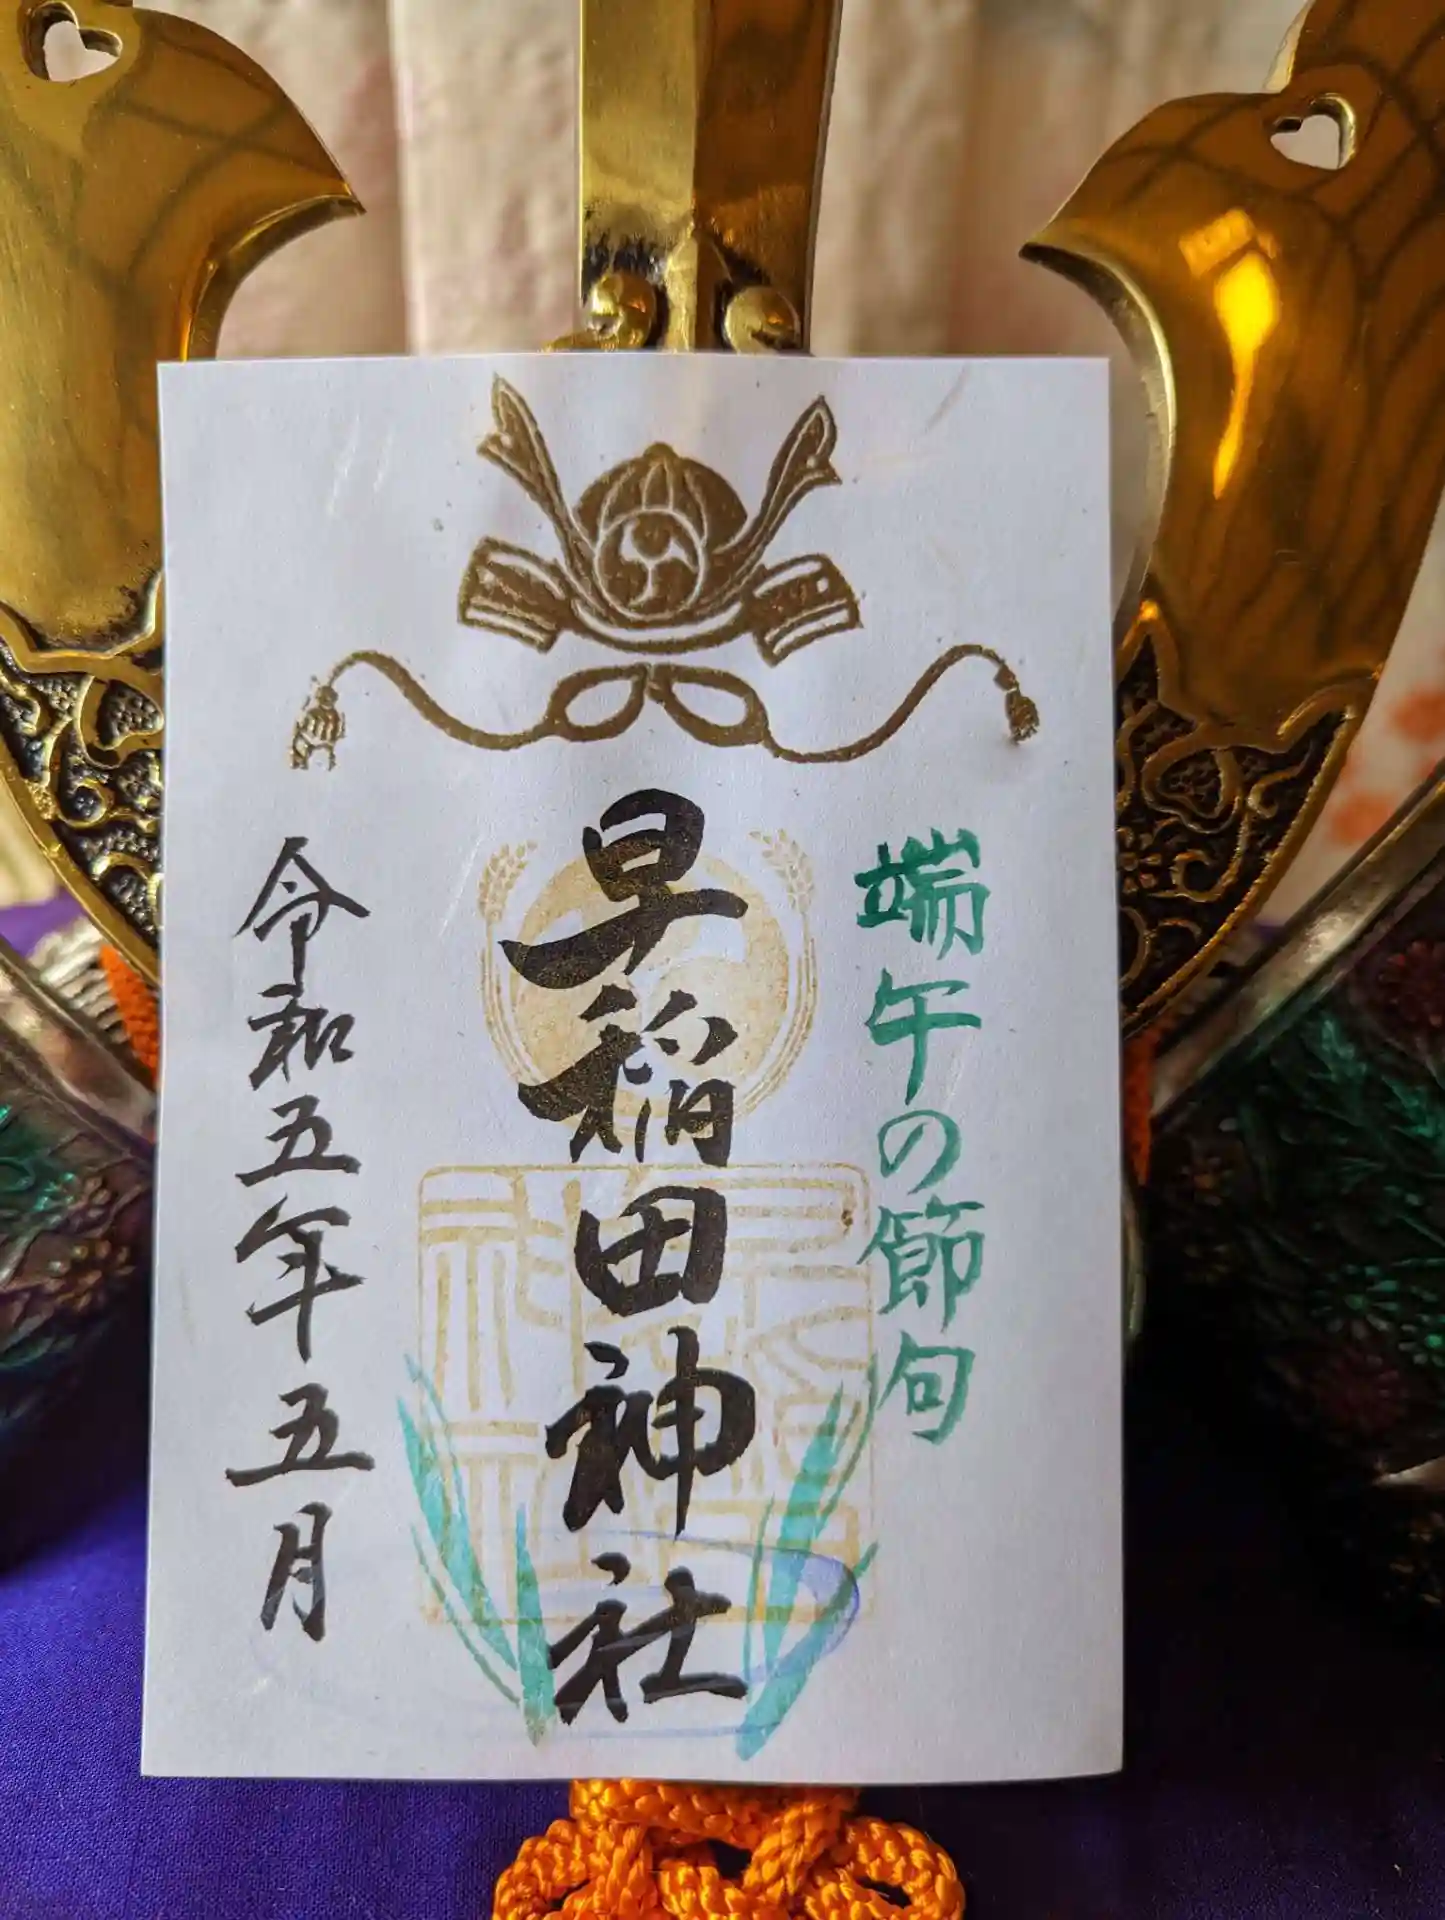 端午の節句
早稲田神社
令和五年五月